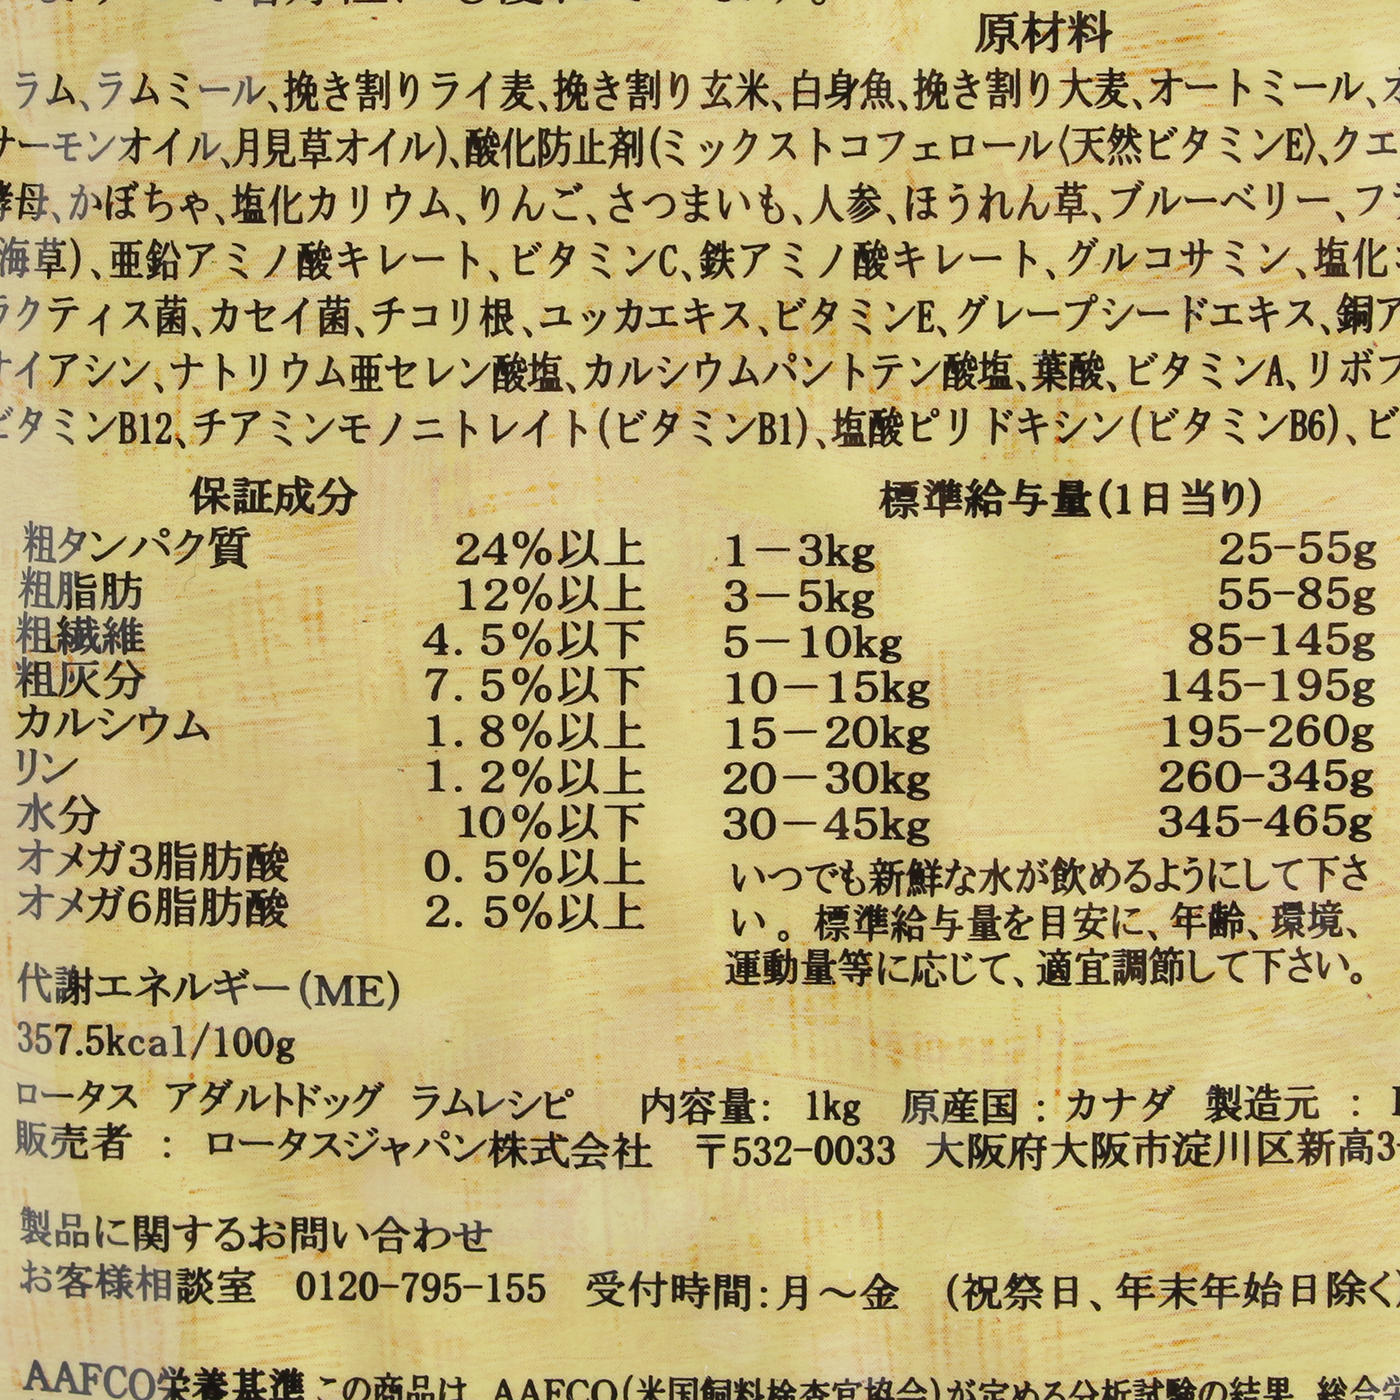 原材料
ラム、ラムミール、挽き割りライ麦、挽き割り玄米、白身魚、挽き割り大麦、オートミール、
サーモンオイル、月見草オイル)、酸化防止剤(ミックストコフェロール〈天然ビタミンE〉、クエ
酵母、かぼちゃ、塩化カリウム、りんご、さつまいも、人参、ほうれん草、ブルーベリー、フ
海草)、亜鉛アミノ酸キレート、ビタミンC、鉄アミノ酸キレート、グルコサミン、塩化
ラクティス菌、カセイ菌、チコリ根、ユッカエキス、ビタミンE、グレープシードエキス、銅ア
ナイアシン、ナトリウム亜セレン酸塩、カルシウムパントテン酸塩、葉酸、ビタミンA、リボフ
ビタミンB12、チアミンモノニトレイト(ビタミンB1)、塩酸ピリドキシン(ビタミンB6)、ビ
保証成分
粗タンパク質 24%以上
粗脂肪 12%以上
粗繊維 4.5%以下
粗灰分 7.5%以下
カルシウム 1.8%以上
リン 1.2%以上
水分 10%以下
オメガ3脂肪酸 0.5%以上
オメガ6脂肪酸 2.5%以上
代謝エネルギー(ME)
357.5kcal/100g
標準給与量(1日当り)
1－3kg 25-55g
3－5kg 55-85g
5－10kg 85-145g
10－15kg 145-195g
15－20kg 195-260g
20－30kg 260-345g
30－45kg 345-465g
いつでも新鮮な水が飲めるようにして下さ
い。標準給与量を目安に、年齢、環境、
運動量等に応じて、適宜調節して下さい。
ロータス アダルトドッグ ラムレシピ 内容量: 1kg 原産国:カナダ 製造元:
販売者 : ロータスジャパン株式会社 〒532-0033 大阪府大阪市淀川区新高3-
製品に関するお問い合わせ
お客様相談室 0120-795-155 受付時間:月～金 (祝祭日、年末年始日除く)
AAFCO栄養基準 この商品は、AAFCO(米国飼料検査官協会)が定める分析試験の結果、総合